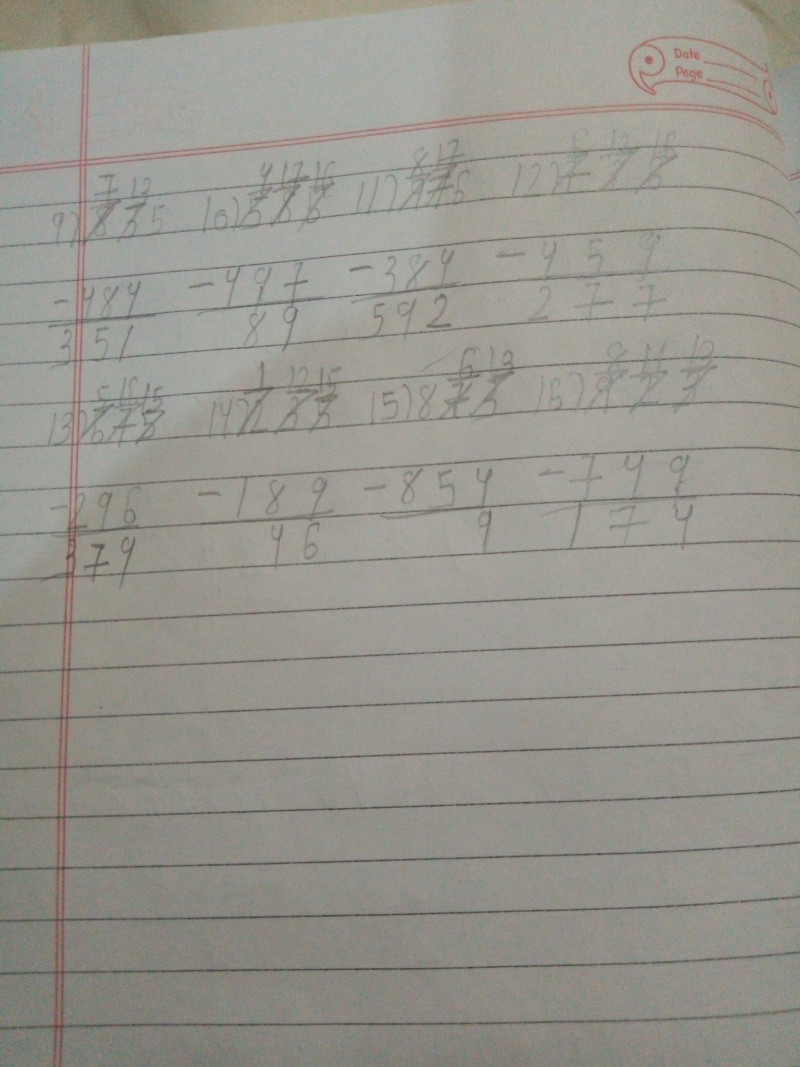 Date
Page
7 13 4 17 16 8 17 6 12 16
9) 835 10) 586 11) 976 12) 736
-484 -497 -384 -459
351 89 592 277
5 16 15 1 12 15 6 13 8 11 13
13) 675 14) 235 15) 873 16) 923
-296 -189 -854 -749
379 46 9 174